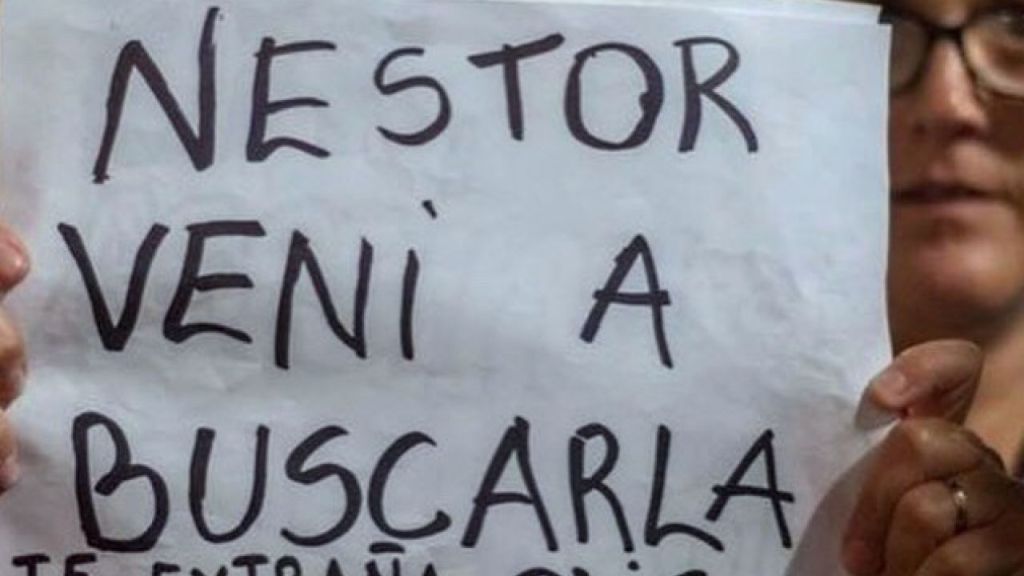 NESTOR
VENÍ A
BUSCARLA
TE EXTRAÑA